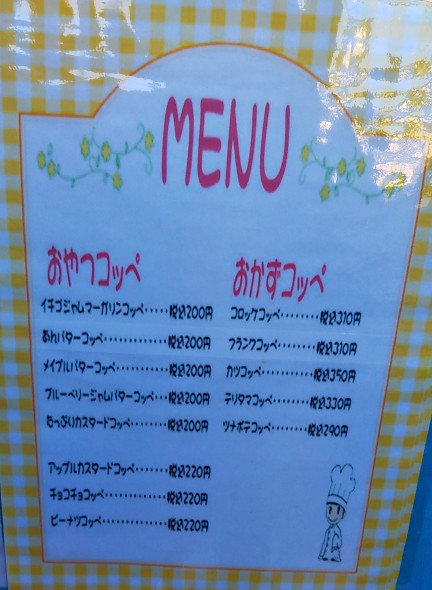 MENU
おやつコッペ
イチゴジャムマーガリンコッペ・・・・・税込200円
あんバターコッペ・・・・・・・・・・・・税込200円
メイプルバターコッペ・・・・・・・・・税込200円
ブルーベリージャムバターコッペ・・・税込200円
たっぷりカスタードコッペ・・・・・・・税込200円
アップルカスタードコッペ・・・・・・・税込220円
チョコチョコッペ・・・・・・・・・・・・税込220円
ピーナツコッペ・・・・・・・・・・・・・税込220円
おかずコッペ
コロッケコッペ・・・・・・・・税込310円
フランクコッペ・・・・・・・・税込310円
カツコッペ・・・・・・・・・・税込350円
テリタマコッペ・・・・・・・・税込330円
ツナポテコッペ・・・・・・・・税込290円